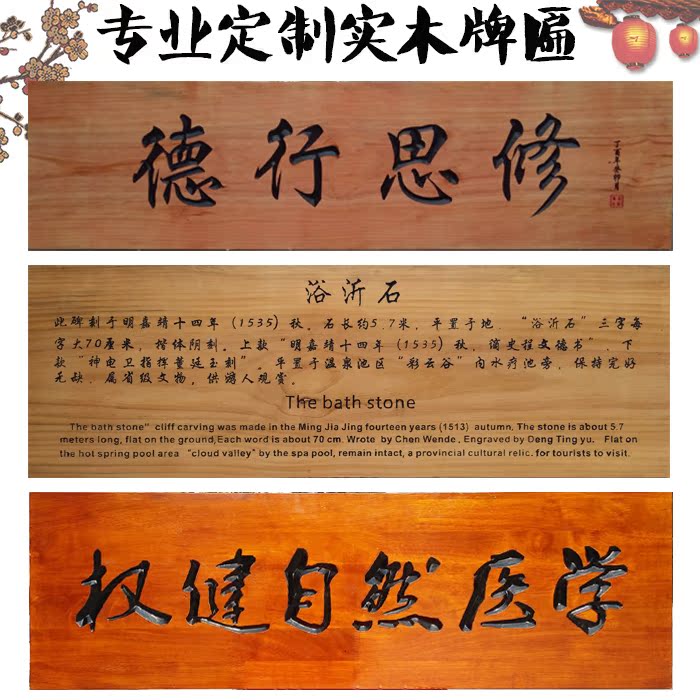 专业定制实木牌匾
德行思修
丁酉年癸卯月
浴沂石
此碑刻于明嘉靖十四年（1535）秋。石长约5.7米，平置于地，“浴沂石”三字每
字大70厘米，楷体阴刻。上款“明嘉靖十四年（1535）秋，滴史程文德书”，下
款“神电卫指挥董廷玉刻”。平置于温泉池区“彩云谷”内水疗池旁，保持完好
无缺，属省级文物，供游人观赏。
The bath stone
The bath stone” cliff carving was made in the Ming Jia Jing fourteen years (1513) autumn. The stone is about 5.7
meters long, flat on the ground,Each word is about 70 cm. Wrote by Chen Wende, Engraved by Deng Ting yu. Flat on
the hot spring pool area “cloud valley” by the spa pool, remain intact, a provincial cultural relic. for tourists to visit.
权健自然医学